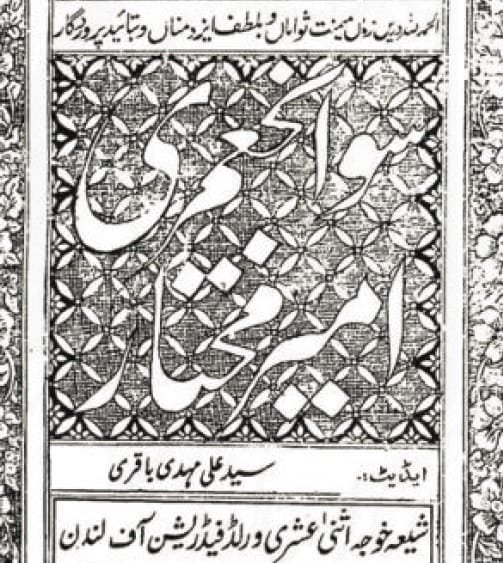 الحمد للہ دریں زماں میمنت تواماں و بلطف ایزد مناں و بتائید پروردگار
سوانحعمری
امیر مختار
ایڈیٹ:۔ سید علی مہدی باقری
شیعہ خوجہ اثنیٰ عشری ورلڈ فیڈریشن آف لندن